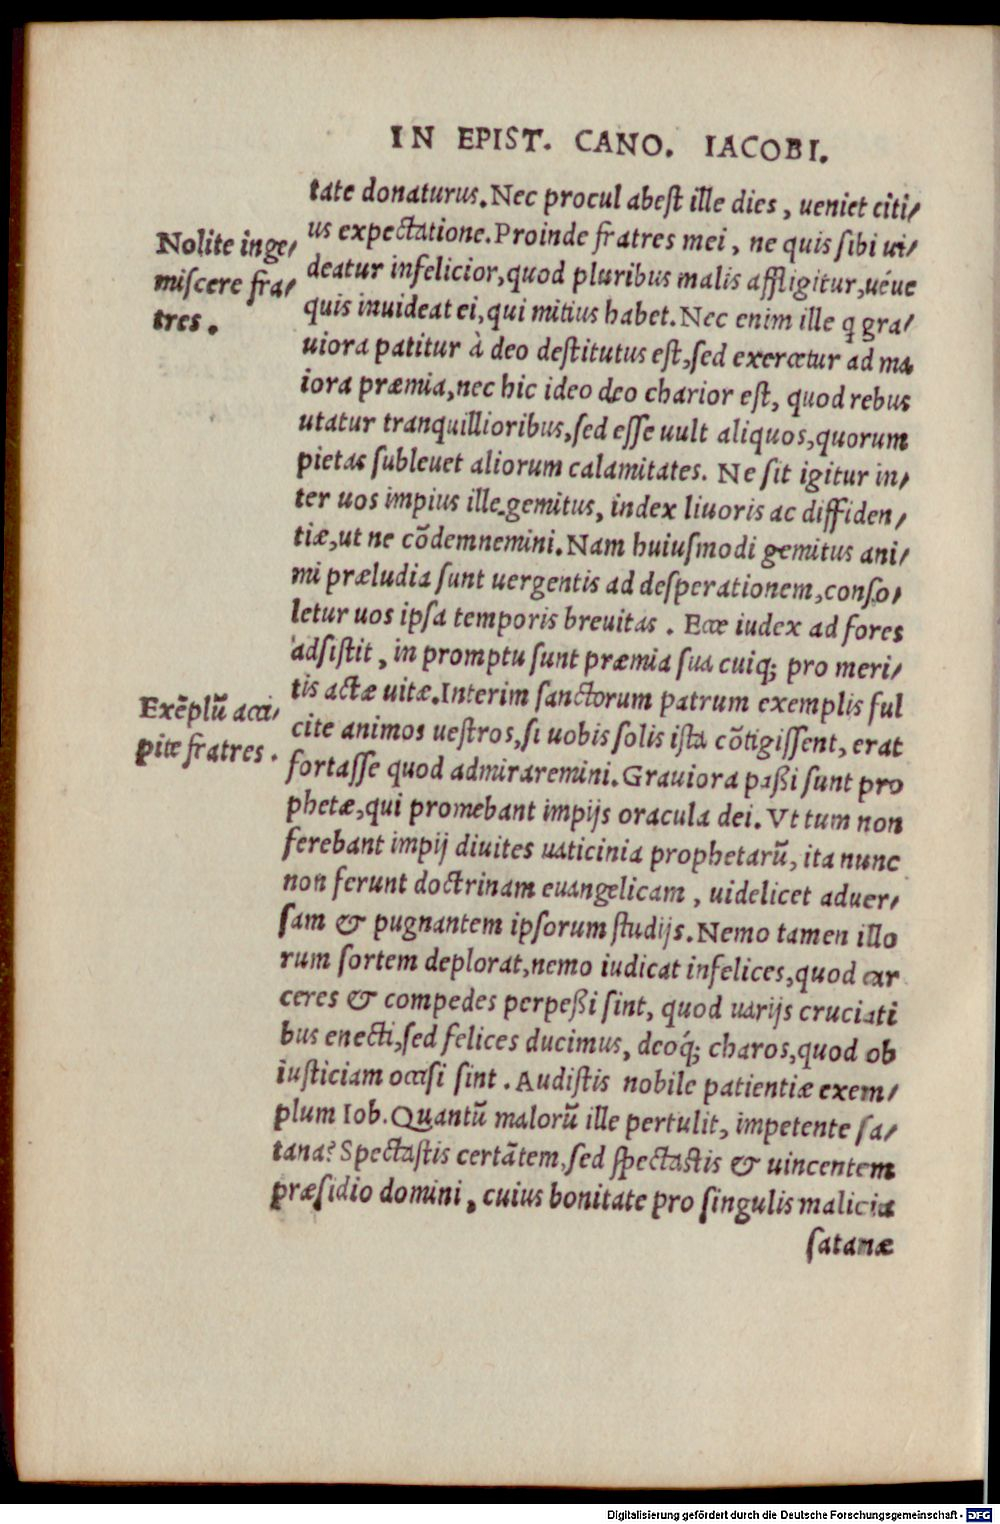 IN EPIST. CANO. IACOBI.
tate donaturus. Nec procul abest ille dies, ueniet citi-
us expectatione. Proinde fratres mei, ne quis sibi ui-
deatur infelicior, quod pluribus malis affligitur, uéue
quis inuideat ei, qui mitius habet. Nec enim ille q̃ gra-
uiora patitur à deo destitutus est, sed exercetur ad ma
iora præmia, nec hic ideo deo charior est, quod rebus
utatur tranquillioribus, sed esse uult aliquos, quorum
pietas subleuet aliorum calamitates. Ne sit igitur in-
ter uos impius ille gemitus, index liuoris ac diffiden-
tiæ, ut ne cõdemnemini. Nam huiusmodi gemitus ani-
mi præludia sunt uergentis ad desperationem, conso-
letur uos ipsa temporis breuitas. Ecce iudex ad fores
adsistit, in promptu sunt præmia sua cuiq; pro meri-
tis actæ uitæ. Interim sanctorum patrum exemplis ful
cite animos uestros, si uobis solis ista cõtigissent, erat
fortasse quod admiraremini. Grauiora paßi sunt pro
phetæ, qui promebant impijs oracula dei. Vt tum non
ferebant impij diuites uaticinia prophetarũ, ita nunc
non ferunt doctrinam euangelicam, uidelicet aduer-
sam & pugnantem ipsorum studijs. Nemo tamen illo
rum sortem deplorat, nemo iudicat infelices, quod car
ceres & compedes perpeßi sint, quod uarijs cruciati
bus enecti, sed felices ducimus, deoq́; charos, quod ob
iusticiam occisi sint. Audistis nobile patientiæ exem-
plum Iob. Quantũ malorũ ille pertulit, impetente sa-
tana? Spectastis certãtem, sed spectastis & uincentem
præsidio domini, cuius bonitate pro singulis malicia
satanæ
Nolite inge-
miscere fra-
tres.
Exẽplũ acci-
pite fratres.
Digitalisierung gefördert durch die Deutsche Forschungsgemeinschaft - DFG